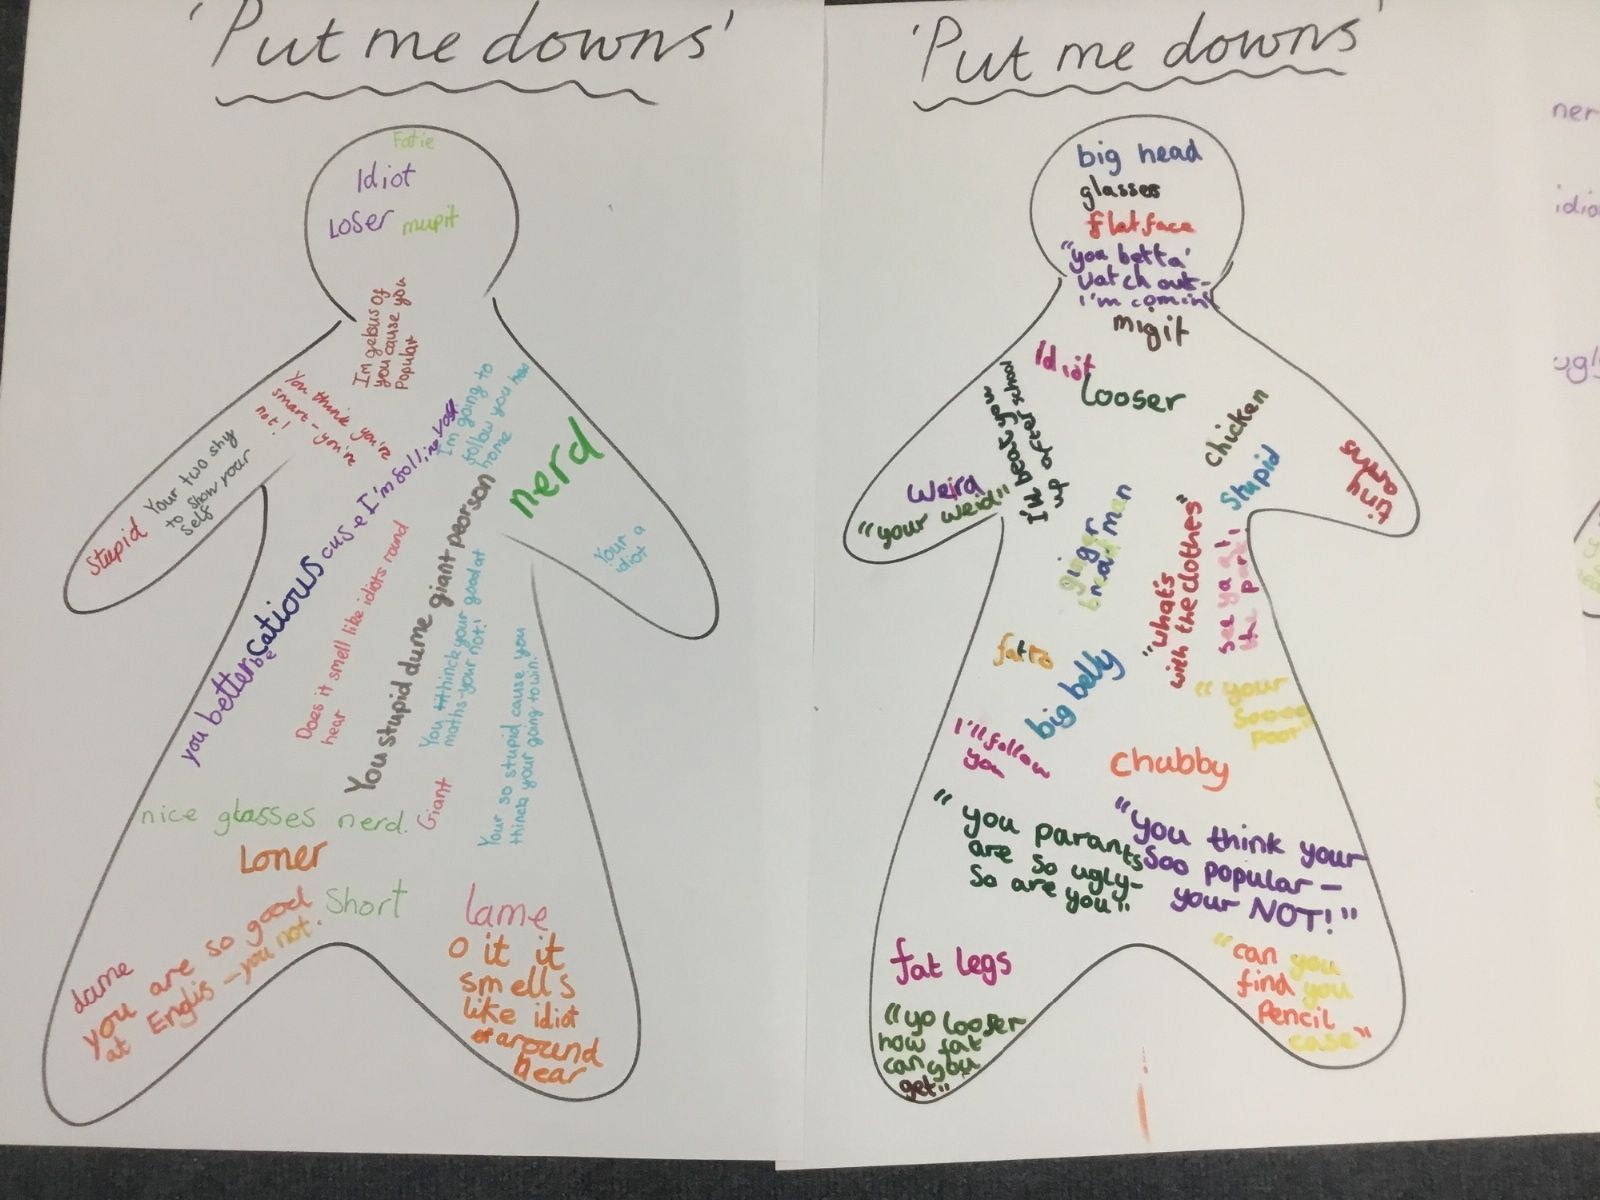 'Put me downs'
Fatie
Idiot
Loser mupit
I'm gelous of
you cause you
Popular
You think you're
smart - you're
not!
Your two shy
to show your
self
Stupid
I'm going to
follow you
home
nerd
Your a
idiot
you better be catious cuse I'm follin
Does it smell like idiots round
hear
You stupid dume giant pearson
You thinck your good at
maths-your not!
Your so stupid cause you
thinck your going to win.
Giant
nice glasses nerd.
Loner
Short
lame
dume
you are so good
at Englis - you not.
O it it
smells
like idiot
around
hear
'Put me downs'
big head
glasses
flatface
"you betta'
watch out-
I'm comin'
migit
Idiot
Looser
I'll beat you
up after school
chicken
Stupid
tiny
arms
Weird
"your weird"
ginger
bread man
"what's
with the clothes"
see ya at
the park!
fatto
big belly
"your
Soooo
poor"
I'll follow
you
chubby
"you parants
are so ugly-
So are you"
"you think your
Soo popular -
your NOT!"
fat legs
"can you
find you
Pencil
case"
"yo looser
how fat
can you
get"
ner
idio
ugly